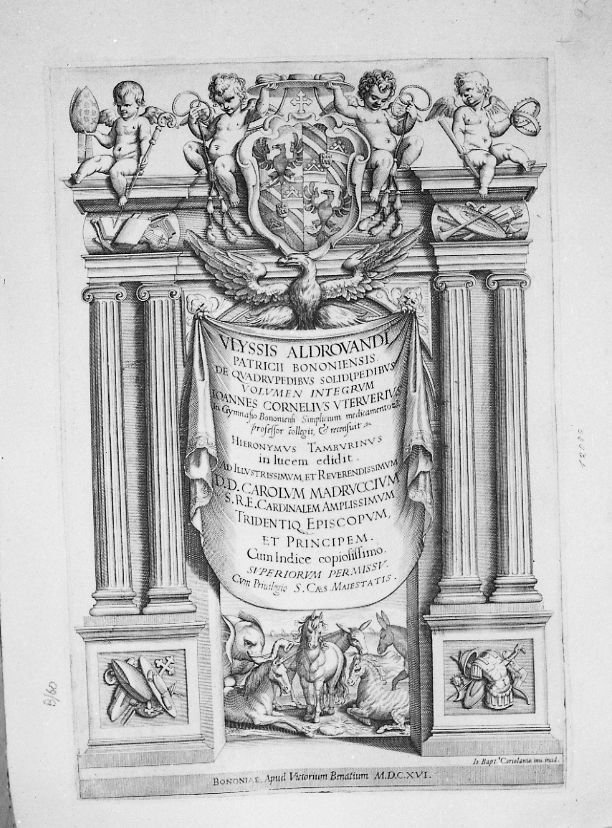 VLYSSIS ALDROVANDI
PATRICII BONONIENSIS
DE QVADRVPEDIBVS SOLIDIPEDIBVS
VOLVMEN INTEGRVM
IOANNES CORNELIVS VTERVERIVS
in Gymnasio Bononiensi Simplicium medicamentorũ
professor collegit, & recensuit
HIERONYMVS TAMBVRINVS
in lucem edidit.
AD ILLVSTRISSIMVM, ET REVERENDISSIMVM
D.D. CAROLVM MADRVCCIVM
S.R.E. CARDINALEM AMPLISSIMVM
TRIDENTIQ EPISCOPVM,
ET PRINCIPEM.
Cum Indice copiosissimo.
SVPERIORVM PERMISSV.
Cum Privilegio S. CÆS MAIESTATIS.
Io Bapt.ª Coriolanus inu incid.
BONONIAE, Apud Victorium Benatium M.D.C.XVI.